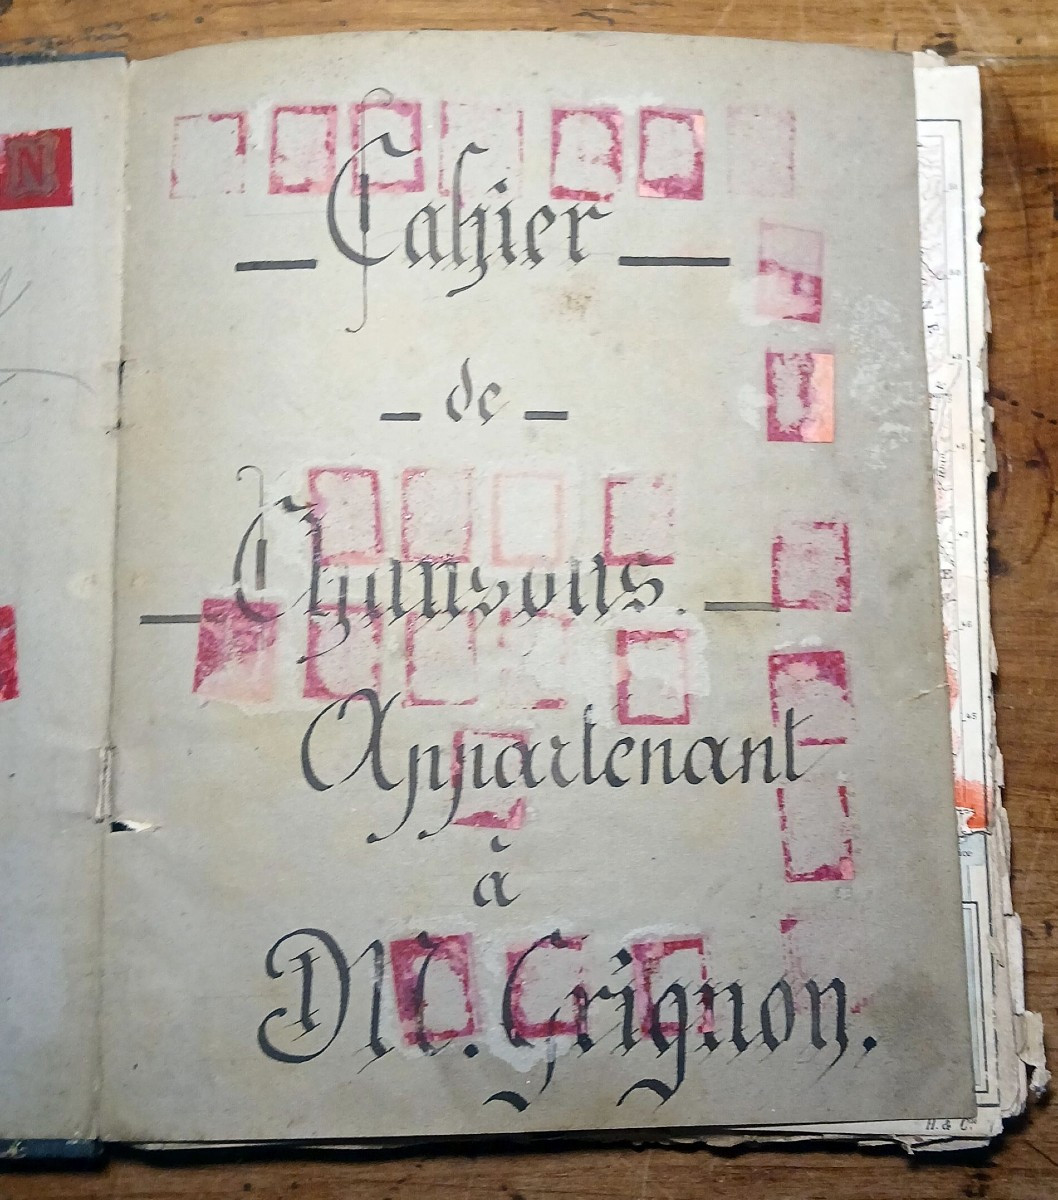 N
Cahier
de
Chansons.
Appartenant
à
M. Grignon.
H. & C